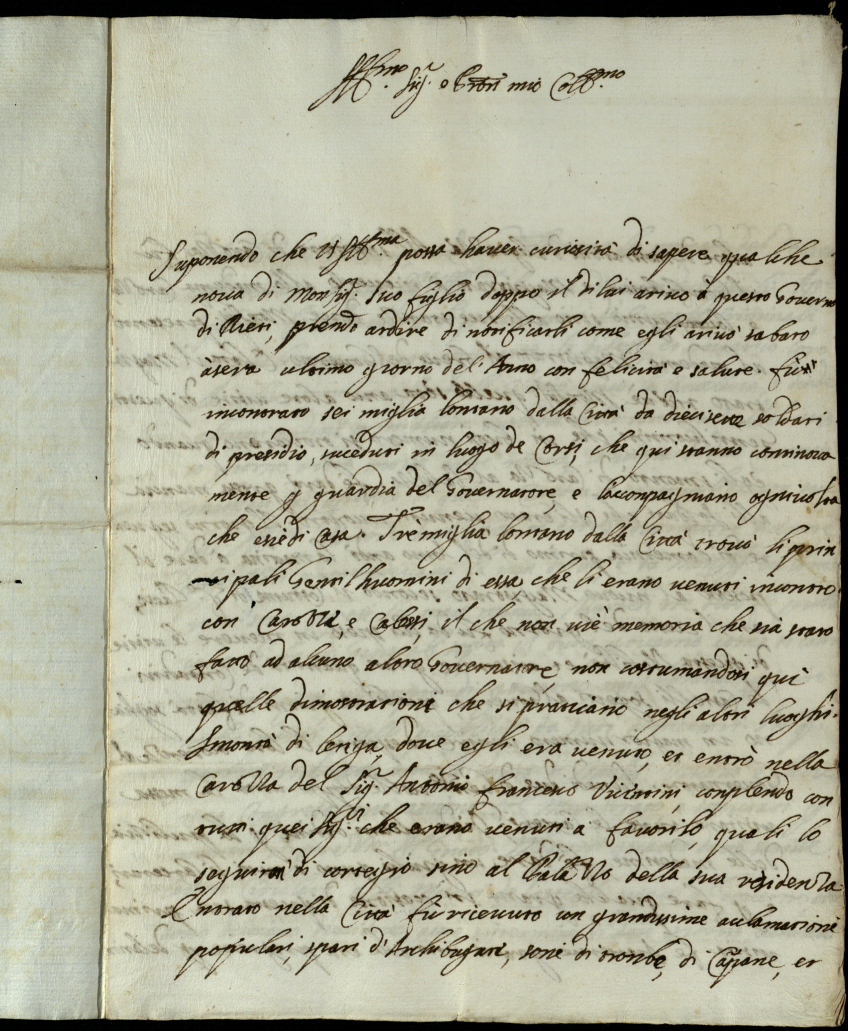 Ill.mo Sig.r e Pron mio Coll.mo
Suponendo che VS Ill.ma possa haver curiosità di sapere qualche
nova di Monsig.r suo figlio doppo il di lui arivo à questo Governo
di Rieti, prendo ardire di notificarli come egli arivò sabato
àsera ultimo giorno del'Anno con felicità e salute. fù
incontrato sei miglia lontano dalla Città da diecisette soldati
di presidio, succeduti in luogo de Corsi, che qui stanno continova
mente p guardia del Governatore, e l'accompagniano ogni volta
che escè di casa. Tré miglia lontano dalla Città trovò li prin
cipali Gentil'huomini di essa, che li erano venuti incontro
con Carozze, e Calessi, il che non viè memoria che sia stato
fatto ad alcuno altro Governatore, non costumandosi quì
quelle dimostrationi che si pratticano negli altri luoghi.
Smontò di letiga, dove egli era venuto, et entrò nella
Carozza del Sig.r Antonio Francesco Vicentini, conplendo con
tutti quei Sig.ri che erano venuti a favorirlo, quali lo
seguirno di cortegio sino al Palazzo della sua residenza.
Entrato nella Città fù ricevuto con grandissime acclamationi
populari, spari d'Archibugiate, soni di tronbe, di Capane, et